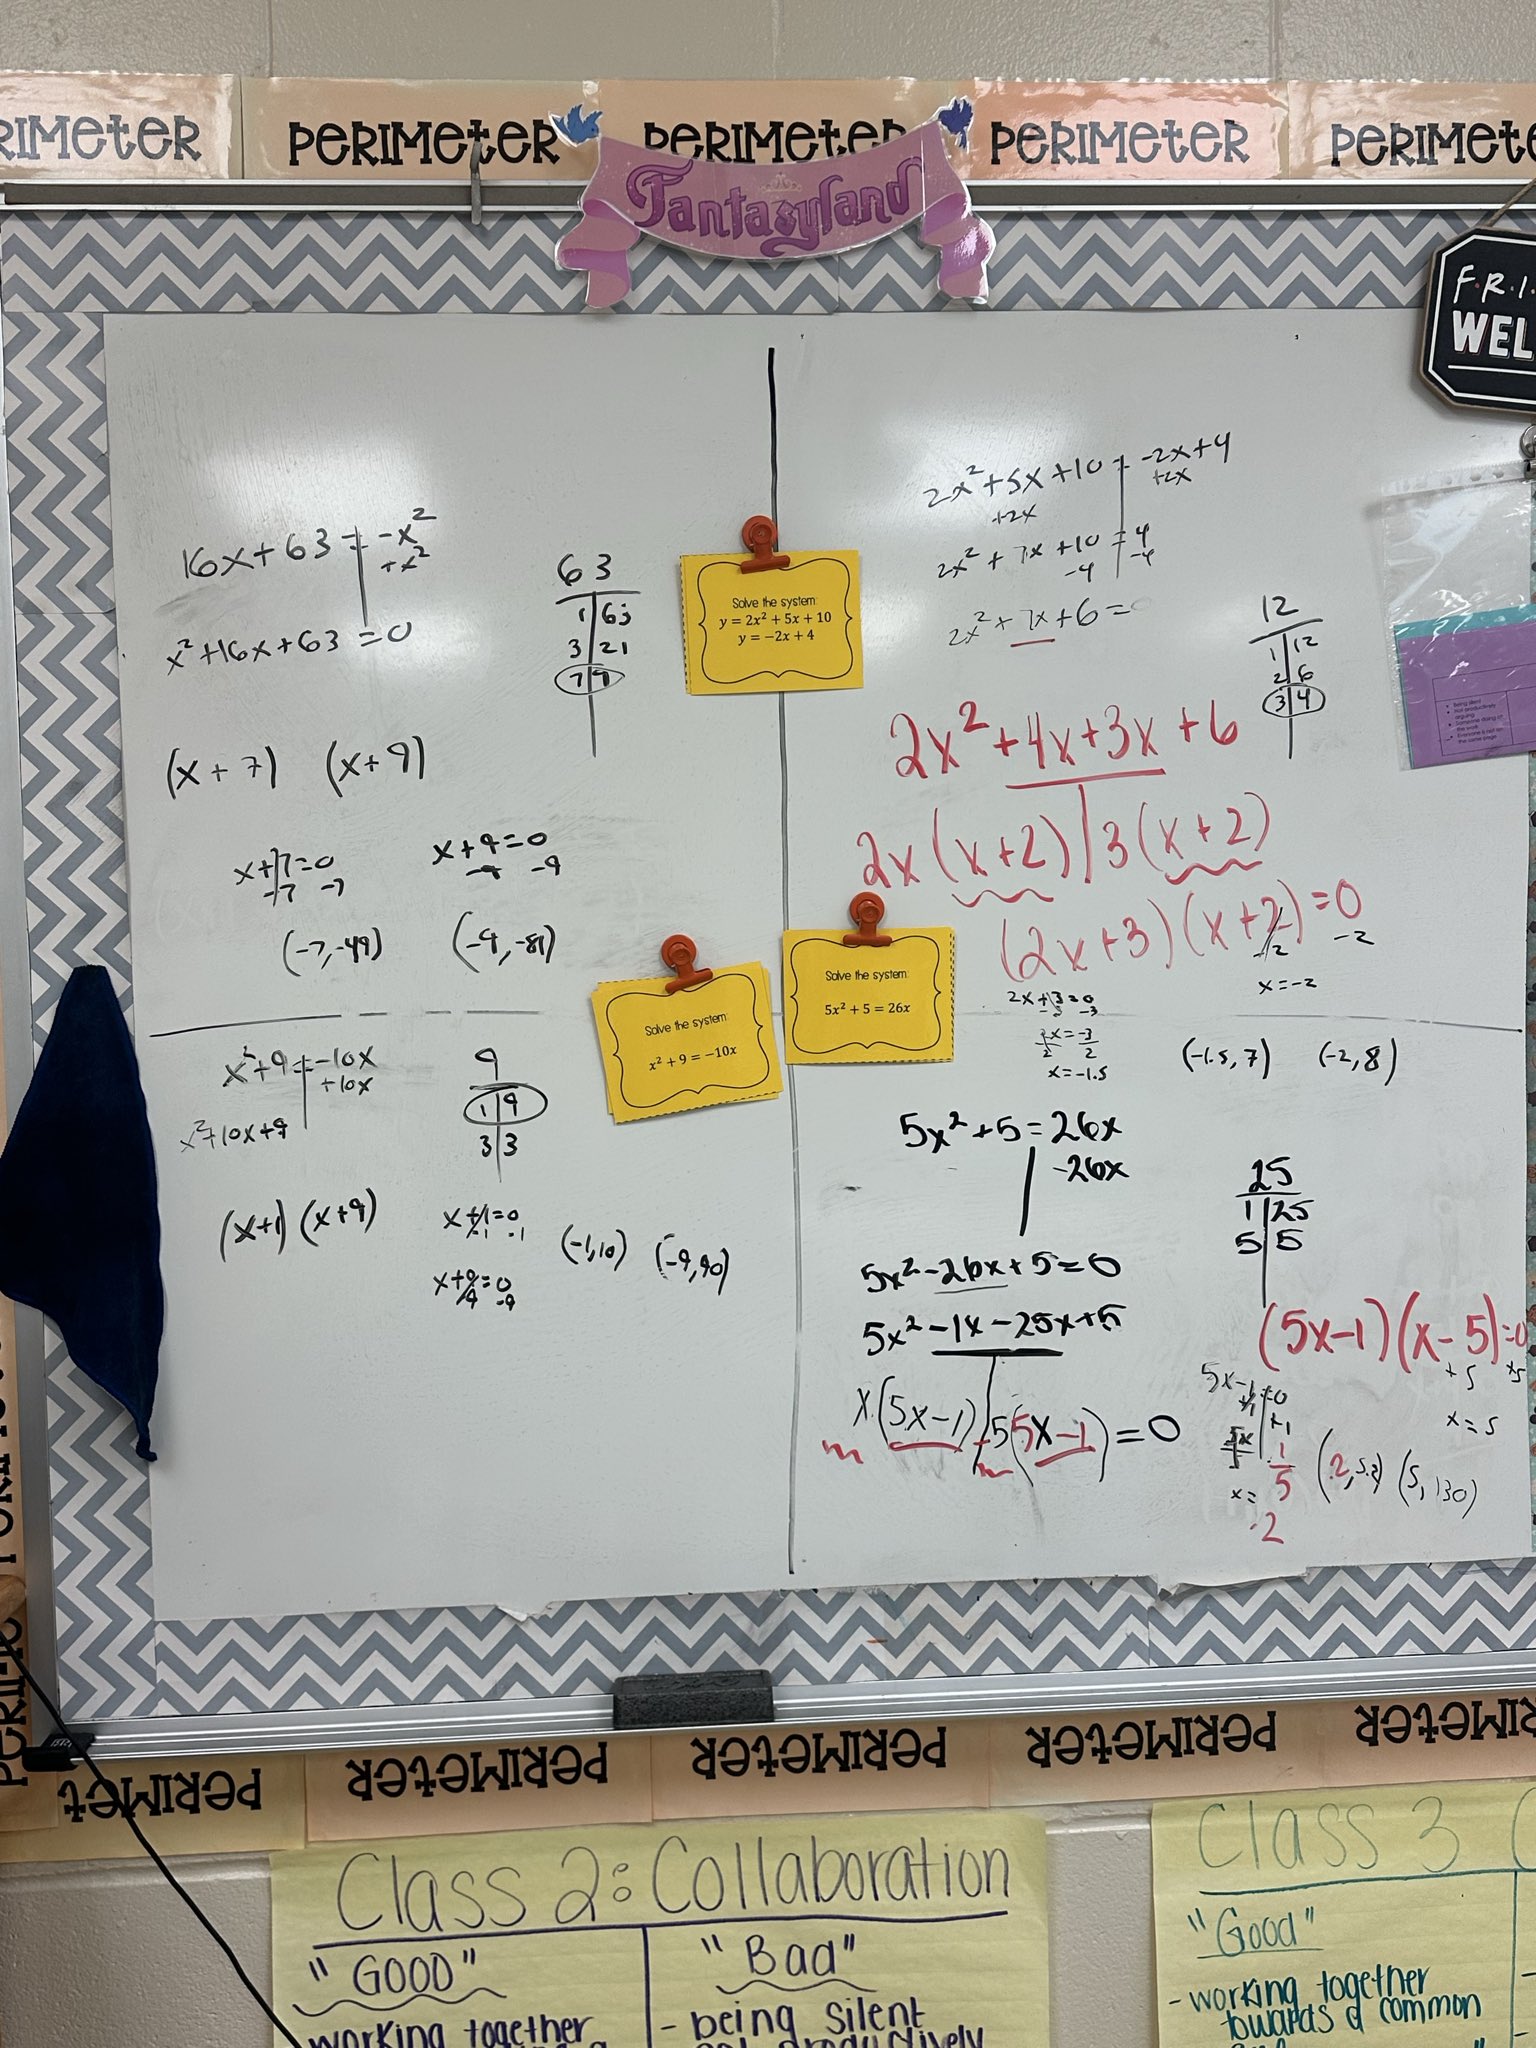 PERIMETER
PERIMETER
PERIMETER
Fantasyland
F.R.I.
WEL
16x+63 = -x²
+x²
x²+16x+63 = 0
63
1 | 63
3 | 21
7 | 9
(x + 7) (x+9)
x+7=0
-7 -7
x+9=0
-9 -9
(-7,-49) (-9,-81)
Solve the system:
y = 2x² + 5x + 10
y = −2x + 4
2x²+5x+10 = -2x+4
+2x +2x
2x² + 7x +10 = 4
-4 -4
2x² + 7x + 6 = 0
12
1 | 12
2 | 6
3 | 4
2x² +4x+3x +6
2x (x+2) | 3 (x+2)
(2x+3)(x+2)=0
-2 -2
x=-2
2x+3=0
-3 -3
2x=-3
2 2
x=-1.5
(-1.5,7) (-2,8)
x²+9=-10x
+10x
x²+10x+9
9
1 | 9
3 | 3
(x+1) (x+9)
x+1=0
-1 -1
x+9=0
-9 -9
(-1,10) (-9,90)
Solve the system:
x² + 9 = −10x
Solve the system:
5x² + 5 = 26x
5x²+5=26x
-26x
5x²-26x+5=0
5x²-1x-25x+5
x(5x-1) -5(5x-1)=0
25
1 | 25
5 | 5
(5x-1)(x-5)=0
+5 +5
x=5
5x-1=0
+1 +1
5x
x= 1/5
.2
(.2,5.2) (5,130)
Being silent
Not productively arguing
Someone doing all the work
Everyone is not on the same page
PERIMETER
PERIMETER
PERIMETER
Class 2: Collaboration
"GOOD" "Bad"
working together
- being silent
Class 3
"Good"
- working together
towards a common